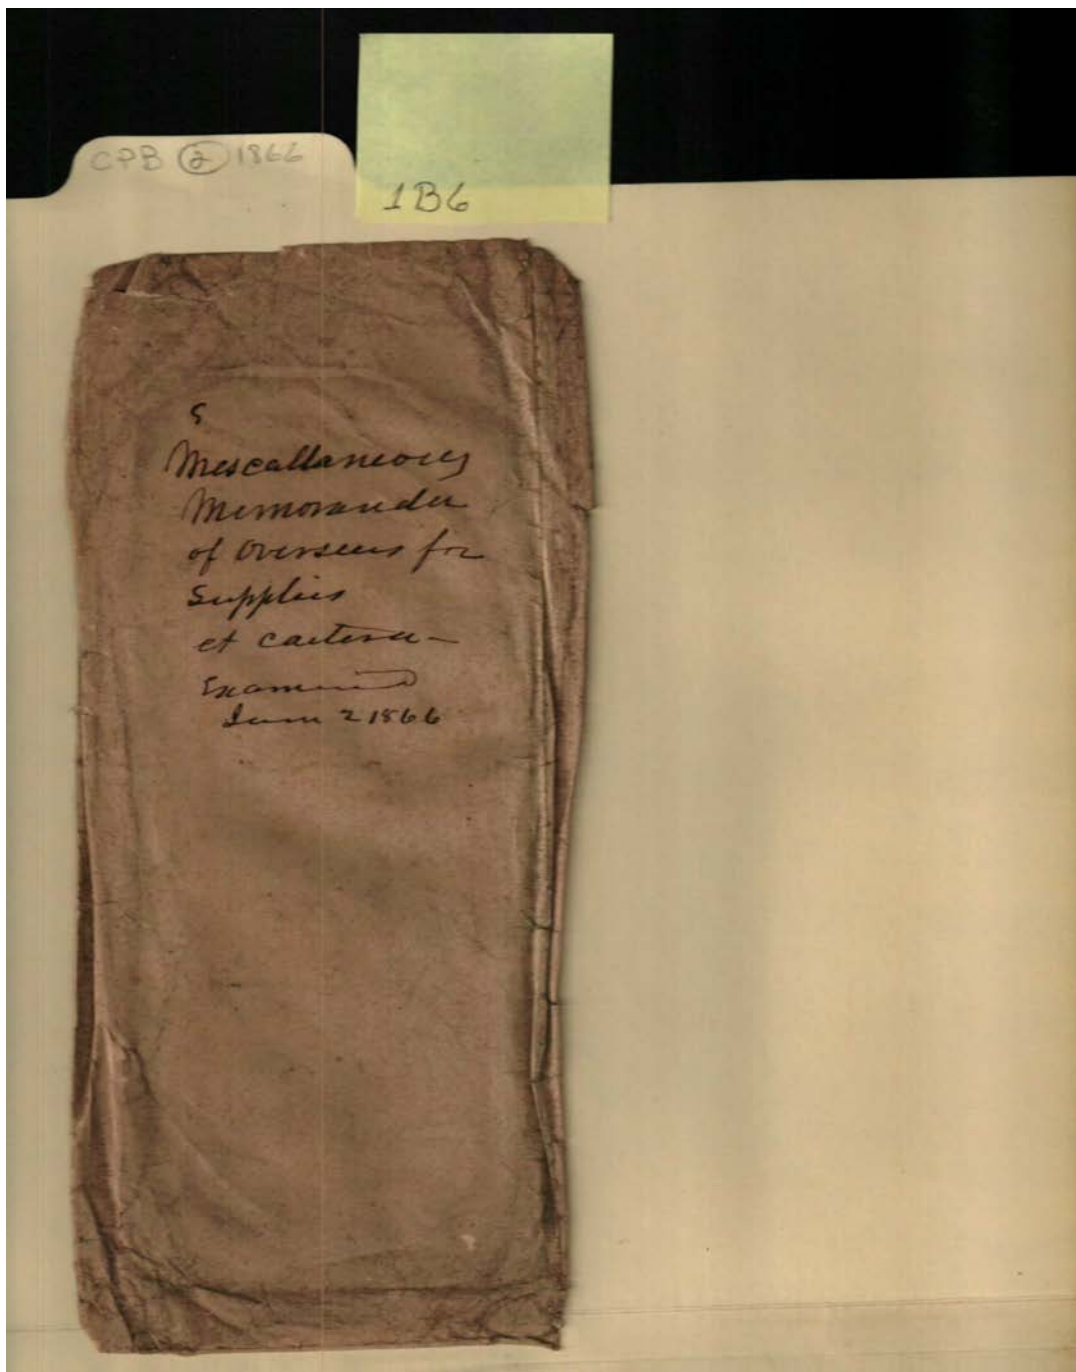 CPB 2 1866
1B6
5
Mescallaneous
Memoranda
of Overseers for
Supplies
et caetera -
Examined
June 2 1866